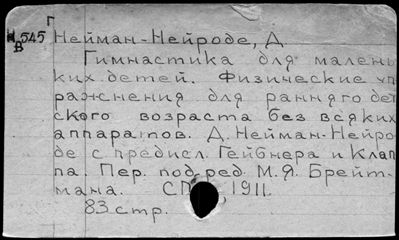 Г
И.545
В
Нейман-Нейроде, Д
Гимнастика для малень
ких детей. Физические уп
ражнения для раннего дет
ского возраста без всяких
аппаратов. Д. Нейман-Нейро
де с предисл. Гейбнера и Клап
па. Пер. под ред. М.Я. Брейт-
мана. СП 1911.
83 стр.